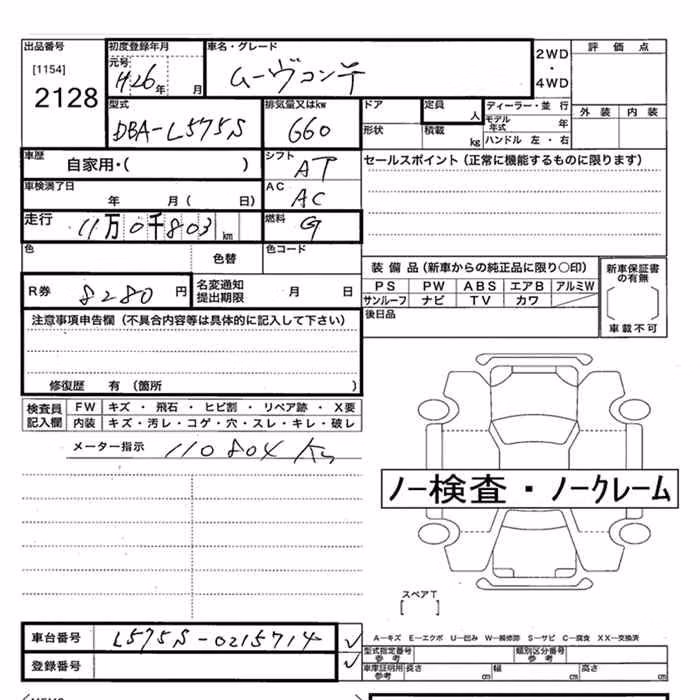 出品番号
[1154]
2128
初度登録年月
元号
H26年 月
車名・グレード
ムーヴコンテ
2WD
・
4WD
評価点
外装 内装
型式
DBA-L575S
排気量又はkw
660
ドア
形状
定員
人
積載
kg
ディーラー・並 行
モデル年式 年
ハンドル 左・右
車歴
自家用・( )
シフト
AT
セールスポイント(正常に機能するものに限ります)
車検満了日
年 月( 日)
AC
AC
走行
11万0千803 km
燃料
G
色
色替
色コード
装備品(新車からの純正品に限り○印)
PS PW ABS エアB アルミW
サンルーフ ナビ TV カワ
後日品
新車保証書の有無
車載不可
R券
8280 円
名変通知
提出期限
月 日
注意事項申告欄(不具合内容等は具体的に記入して下さい)
修復歴 有(箇所 )
検査員記入欄
FW キズ・飛石・ヒビ割・リペア跡・X要
内装 キズ・汚レ・コゲ・穴・スレ・キレ・破レ
メーター指示 110804 km
ノー検査・ノークレーム
スペアT
[ ]
車台番号 L575S-0215714 ✓
登録番号 ✓
A―キズ E―エクボ U―凹み W―補修跡 S―サビ C―腐食 XX―交換済
型式指定番号
参考
類別区分番号
参考
車庫証明用
参考
長さ cm 幅 cm 高さ cm